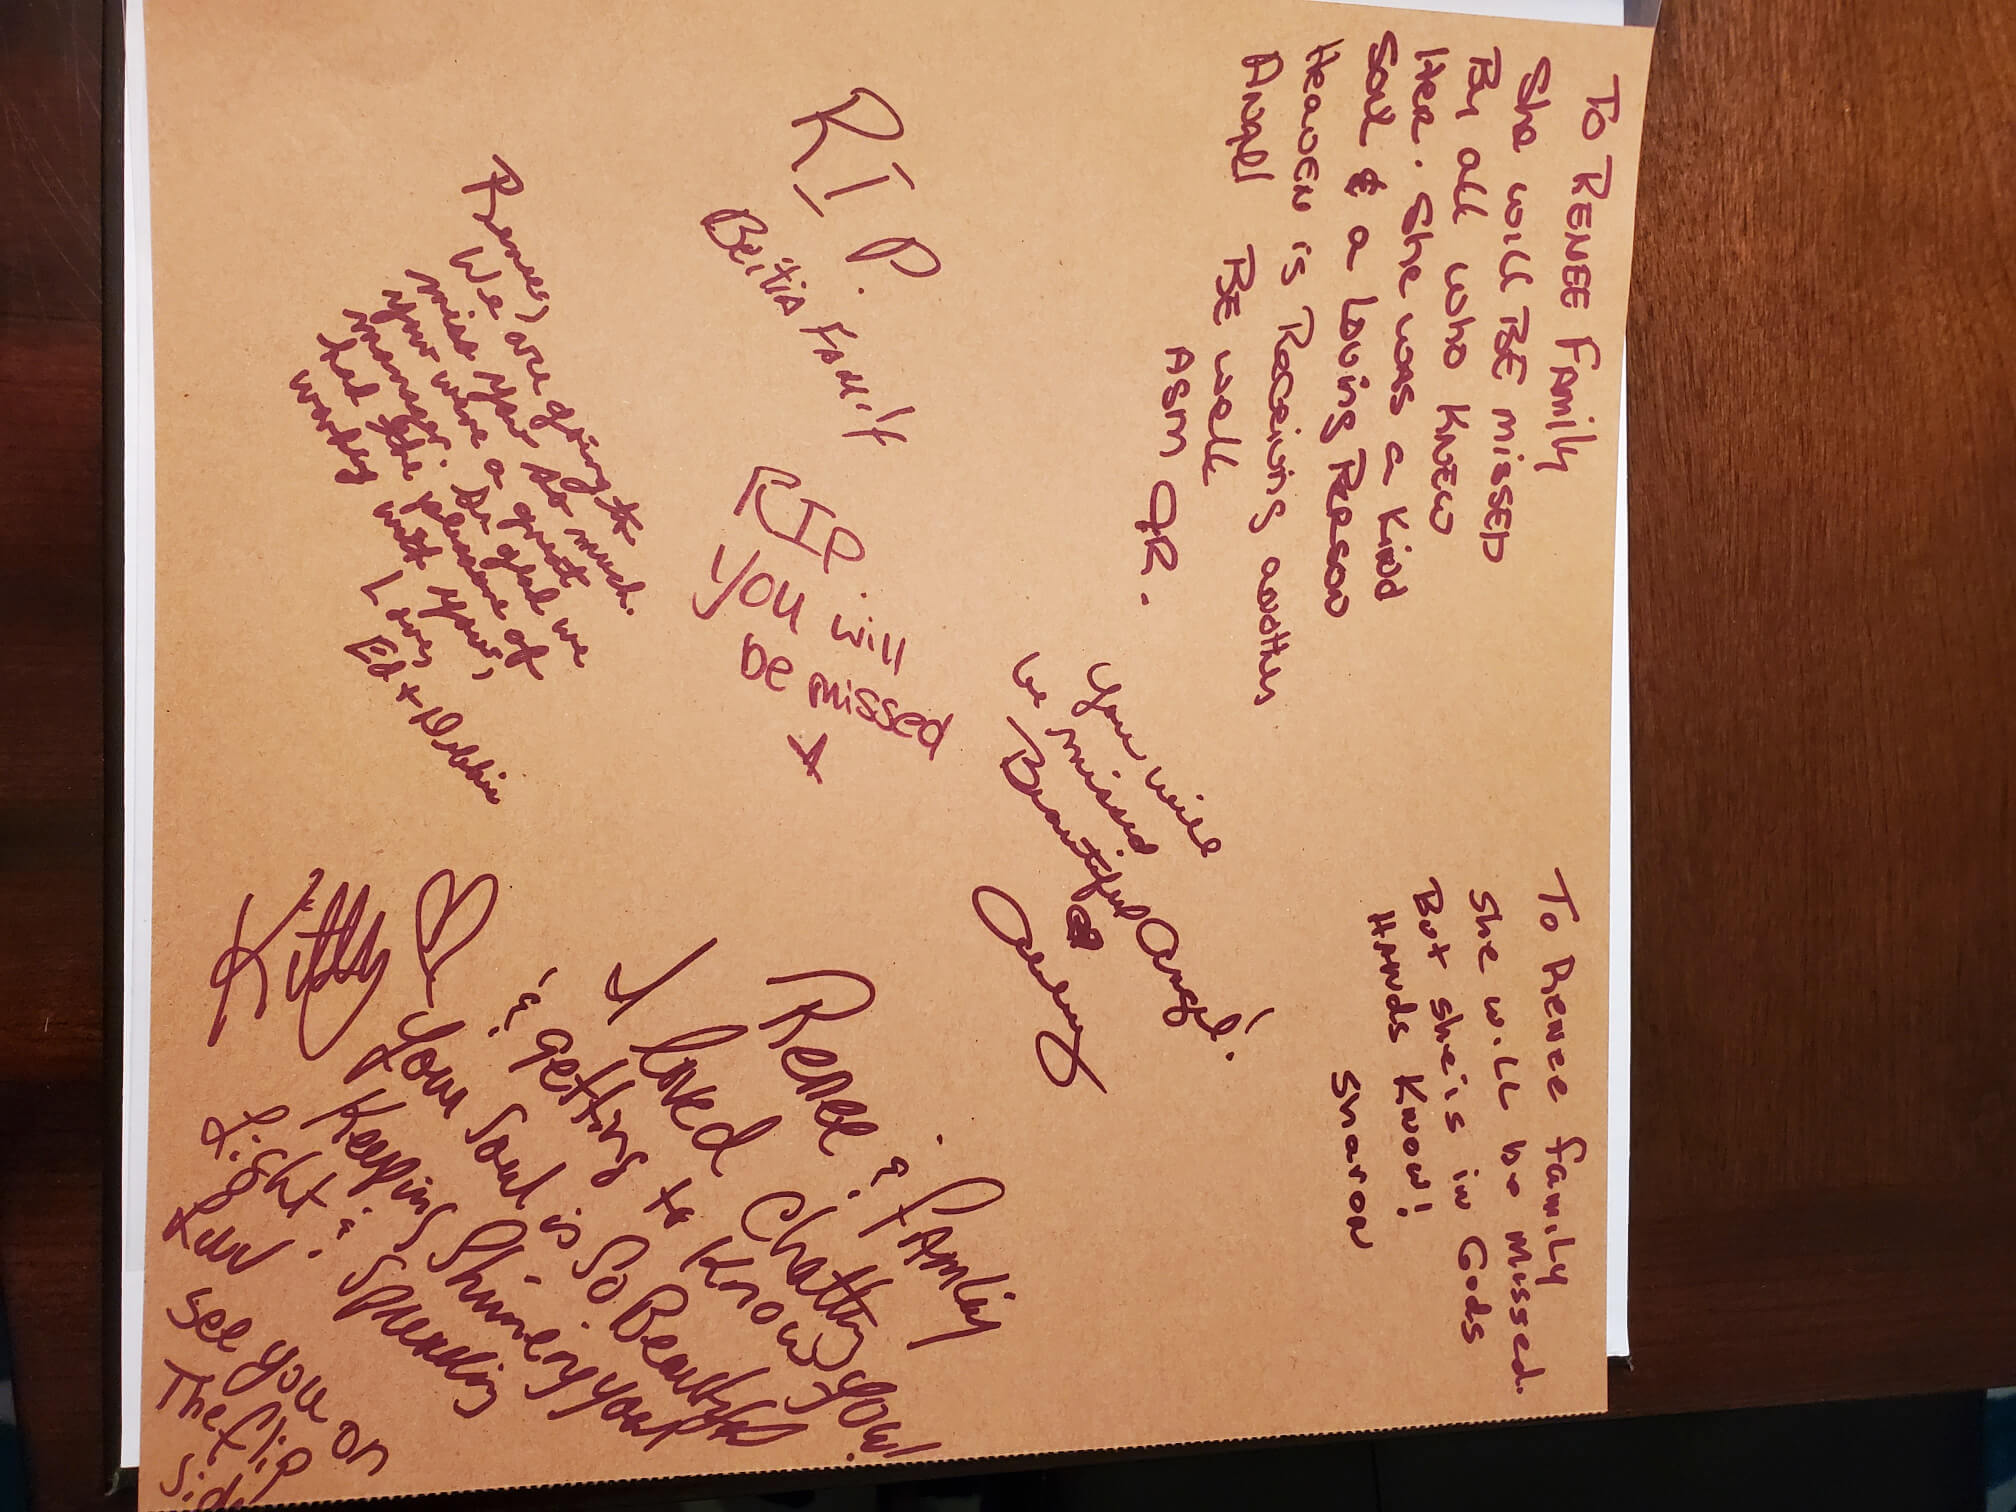 To RENEE Family
She will BE missED
By all who KNEW
Her. She was a Kind
Soul & a Loving Person
HEAVEN is Receiving another
Angel BE well
ASM JR.
To Renee Family
She will be Missed.
But she's in Gods
HANds Know!
Sharon
You will
be missed
Beautiful Angel!
RIP.
Beitia Family
RIP
you will
be missed
Renee,
We are going to
miss you so much.
You were a great
manager. So glad we
had the pleasure of
working with you,
Love,
Ed + Debbie
Renee & Family
I loved Chatting
& getting to Know you!
Your Soul is So Beautiful
Keeping Shinning your
Light & Spreading
Luv
Kitty
see you on
The flip
side